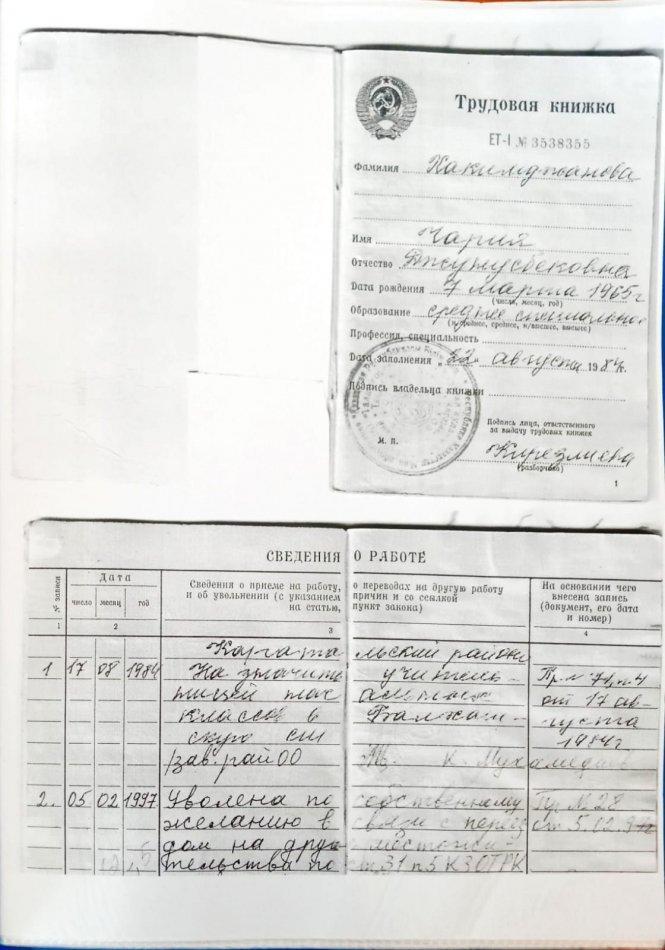 Трудовая книжка
ЕТ-I № 3538355
Фамилия Хакимджанова
Имя Чария
Отчество Джунусбековна
Дата рождения 7 марта 1965г
(число, месяц, год)
Образование среднее специальное
(н/среднее, среднее, н/высшее, высшее)
Профессия, специальность
Дата заполнения „22“ августа 1984г.
Подпись владельца книжки
Подпись лица, ответственного
за выдачу трудовых книжек
М. П.
(разборчиво)
1
СВЕДЕНИЯ О РАБОТЕ
№ записи
Дата
число месяц год
Сведения о приеме на работу, о переводах на другую работу
и об увольнении (с указанием причин и со ссылкой
на статью, пункт закона)
На основании чего
внесена запись
(документ, его дата
и номер)
1 2 3 4
Каратальский район
1 17 08 1984 Назначить учитель Пр. № 71, п. 4
от 17 ав-
классов в густа
скую сш 1984г
/зав. рай ОО К. Мухамедиев
2. 05 02 1997 Уволена по собственному Пр № 28
желанию в связи с переез от 5.02.97г
дом на друг местожи-
тельства по ст. 31 п5 КЗОТРК